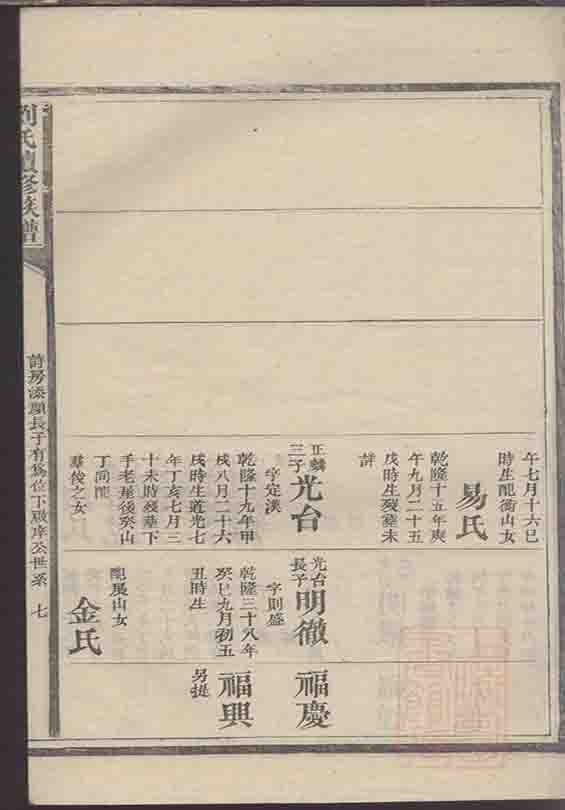 午七月十六巳
時生配衡山女
易氏
乾隆十五年庚
午九月二十五
戌時生歿葬未
詳
正麟
三子光台
字定漢
乾隆十九年甲
戌八月二十六
戌時生道光七
年丁亥七月三
十未時歿葬下
手老屋後癸山
丁向配
羣俊之女
光台
長子明徹
字則盛
乾隆三十八年
癸巳九月初五
丑時生
配展山女
金氏
福慶
福興
另提
劉氏續修族譜
長子有為位下 公世系 七